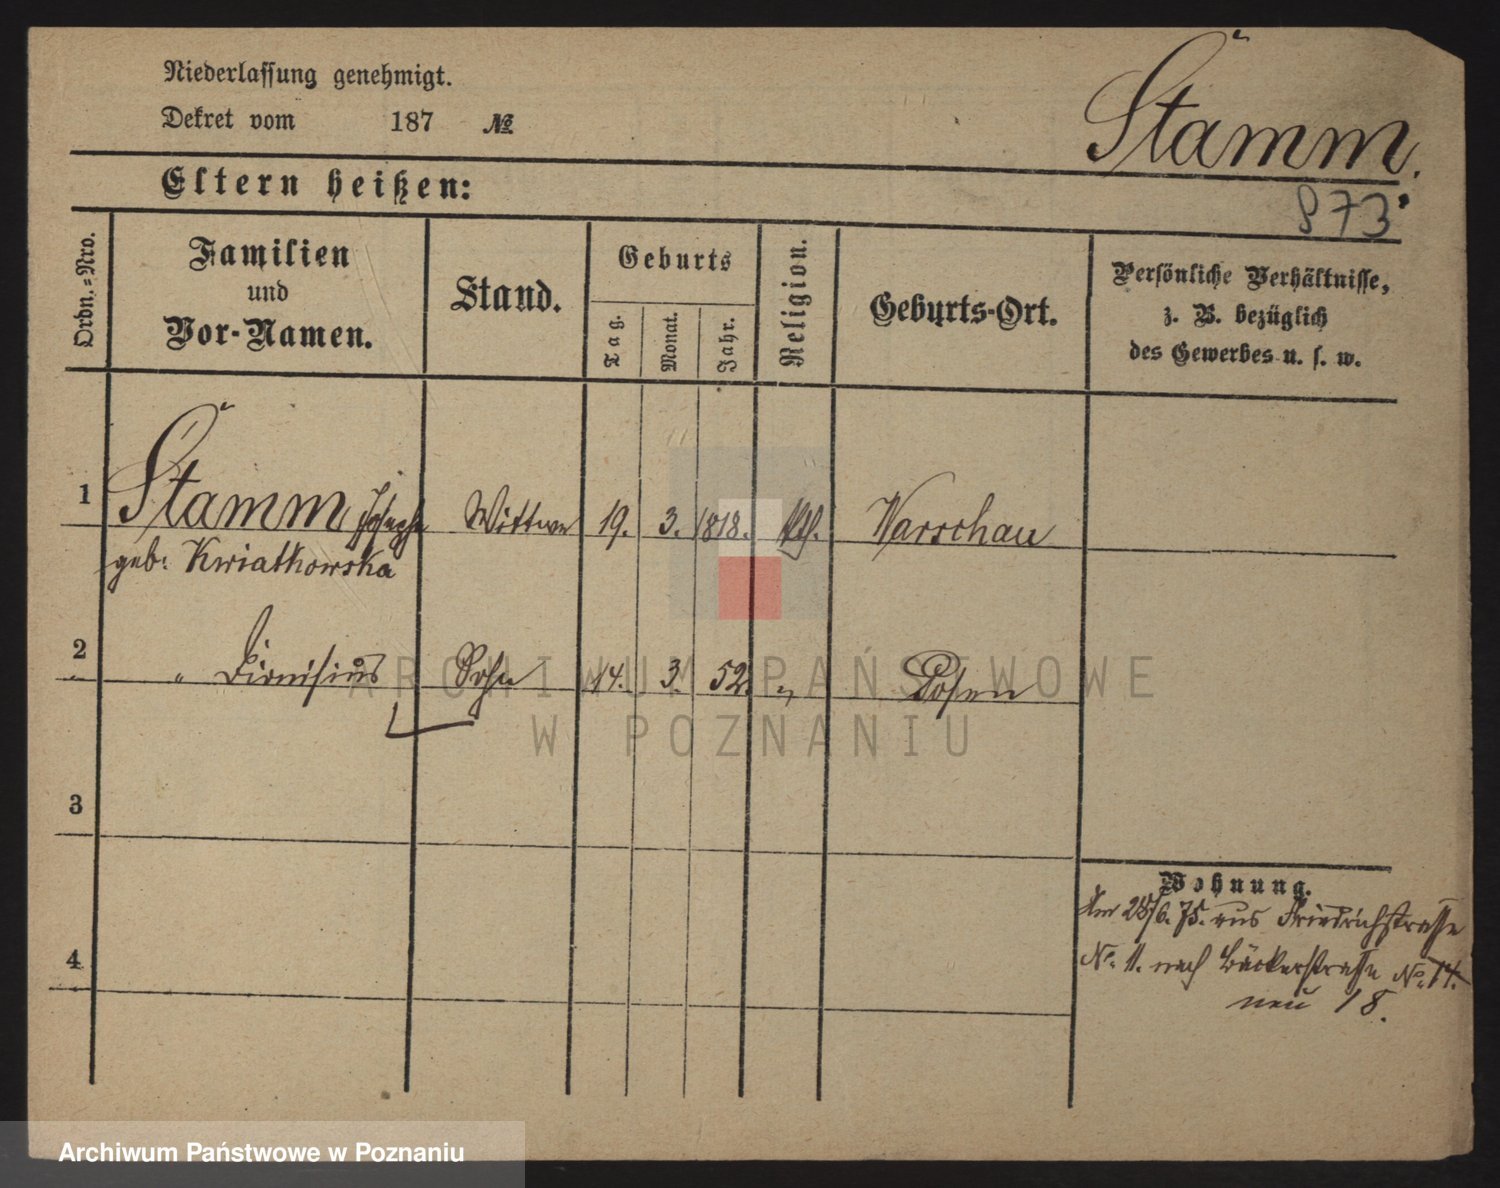 Niederlassung genehmigt.
Dekret vom 187 №
Stamm.
Eltern heißen:
873
Ordn.-Nro.
Familien
und
Vor-Namen.
Stand.
Geburts
Tag.
Monat.
Jahr.
Religion.
Geburts-Ort.
Persönliche Verhältnisse,
z. B. bezüglich
des Gewerbes u. s. w.
1 Stamm Josepha Wittwe 19. 3. 1818. kth. Warschau
geb: Kwiatkowska
2 " Dionisius Sohn 14. 3. 52. " Posen
ARCHIWUM PAŃSTWOWE
W POZNANIU
3
Wohnung.
Am 28/6. 75. aus Friedrichstrasse
4 No. 11. nach Bäckerstrasse No. 14.
neu 18.
Archiwum Państwowe w Poznaniu